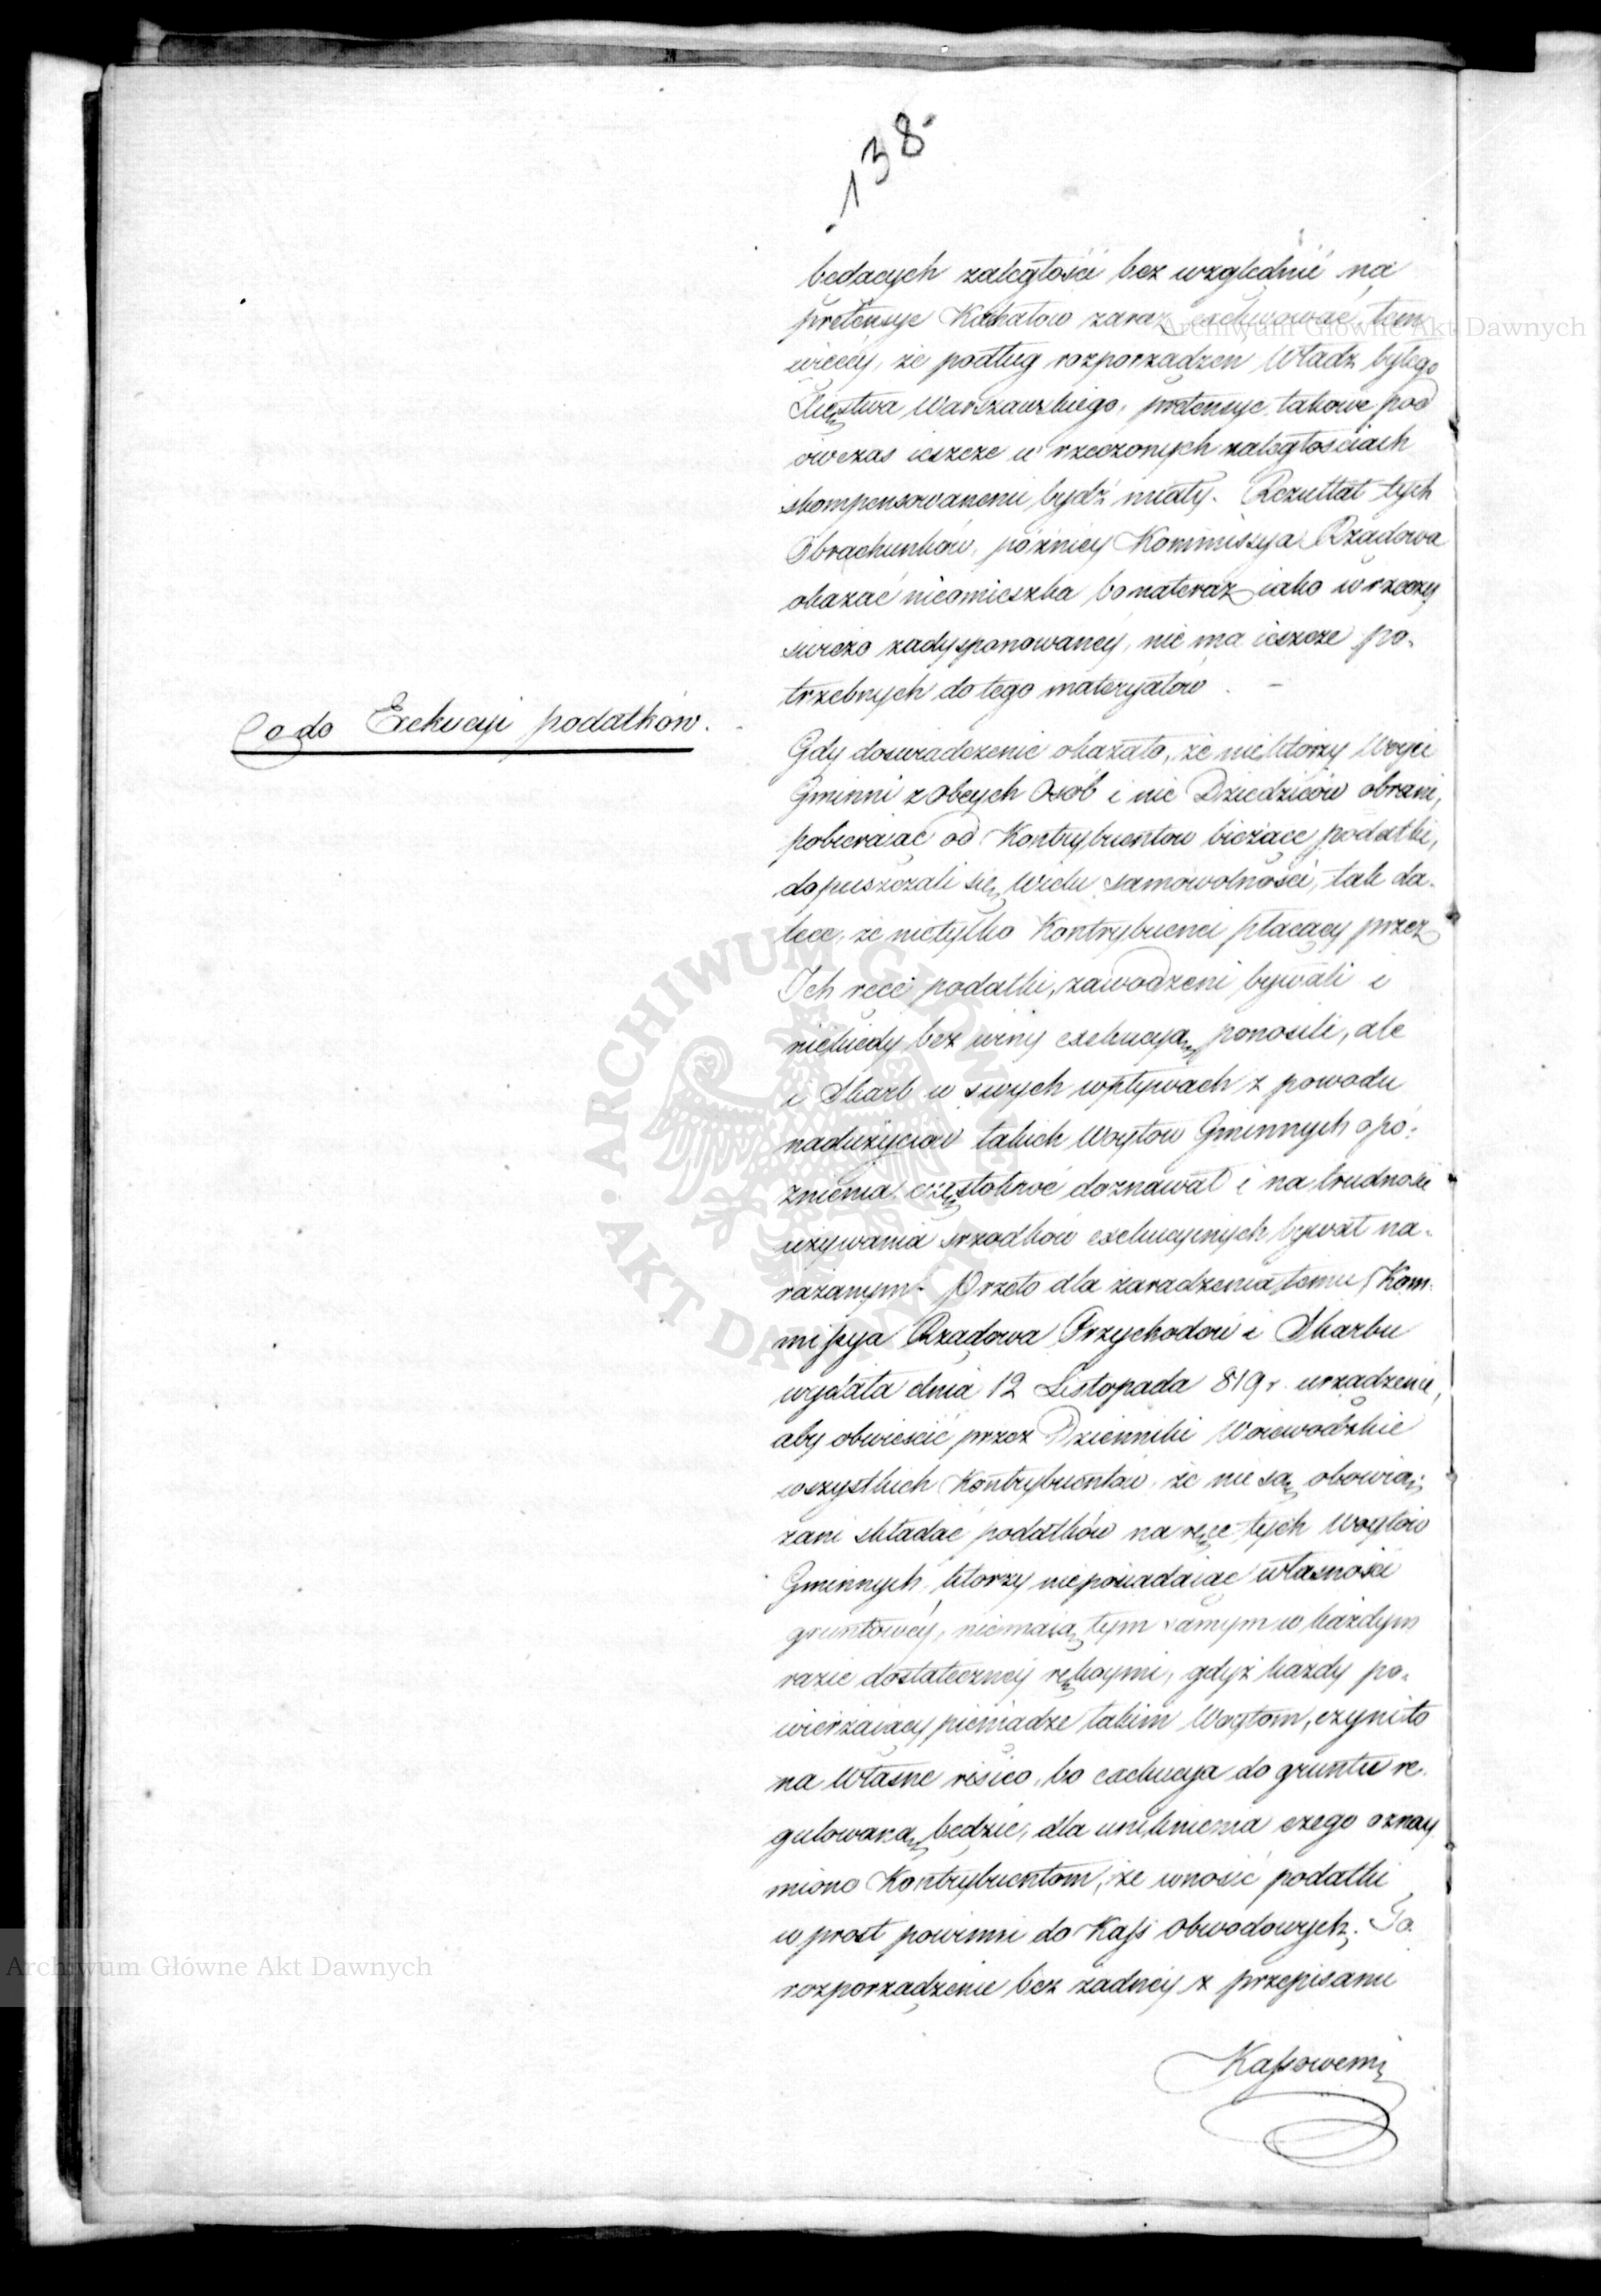 - 138 -
będących zaległości bez względnie na
pretensye Kahałow zaraz exekwować, tem
więcéy, że podług rozporządzen Władz byłego
Xięstwa Warszawskiego, pretensye takowe pod
owczas ieszcze w rzeczonych zaległościach
skompensowanemi bydź miały. Rezultat tych
Obrachunków, późniey Kommissya Rządowa
okazać nieomieszka bo nateraz iako w rzeczy
swieżo zadysponowanéy, nie ma ieszcze po-
trzebnych do tego materyałow. -
Co do Exekucyi podatków.
Gdy doswiadczenie okazało, że niektórzy Woyci
Gminni z obcych Osób i nie Dziedziców obrani,
pobieraiąc od Kontrybuentow bieżące podatki,
dopuszczali się wielu samowolności, tak da-
lece, że nietylko Kontrybuenci płacący przez
Ich ręce podatki, zawodzeni bywali i
niekiedy bez winy exekucyą ponosili, ale
i Skarb w swych wpływach z powodu
nadużyciow takich Woytow Gminnych opó-
znienia częstokroć doznawał i na trudności
używania srzodków exekucyinych bywał na-
rażanym. Przeto dla zaradzenia temu Kom-
missya Rządowa Przychodow i Skarbu
wydała dnia 12 Listopada 819 r. urządzenie,
aby obwieścić przez Dzienniki Woiewodzkie
wszystkich Kontrybuentów, że nie są obowią-
zani składać podatków na ręce tych Woytów
Gminnych, ktorzy nieposiadaiąc własności
gruntowéy, niemaią tym samym w każdym
razie dostateczney rękoymi, gdyż każdy po-
wierzaiący pieniądze takim Woytom, czyni to
na własne risico, bo exekucya do gruntu re-
gulowaną będzie, dla uniknienia czego oznay
miono Kontrybuentom, że wnosić podatki
w prost powinni do Kass Obwodowych. To
rozporządzenie bez żadnéy z przepisami
Kassowemi
Archiwum Główne Akt Dawnych
Archiwum Główne Akt Dawnych
ARCHIWUM GŁÓWNE AKT DAWNYCH